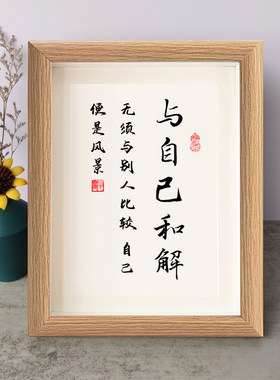 与自己和解
无须与别人比较 自己
便是风景